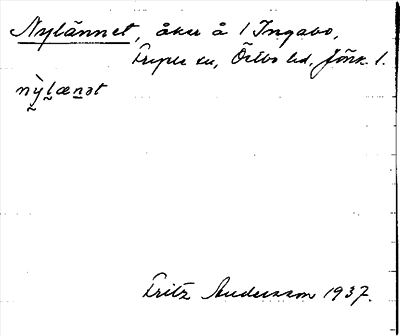 Nylännet, åker å 1 Ingabo,
Fryele sn, Östbo hd, Jönk. l.
nỳlænət
Fritz Andersson 1937.